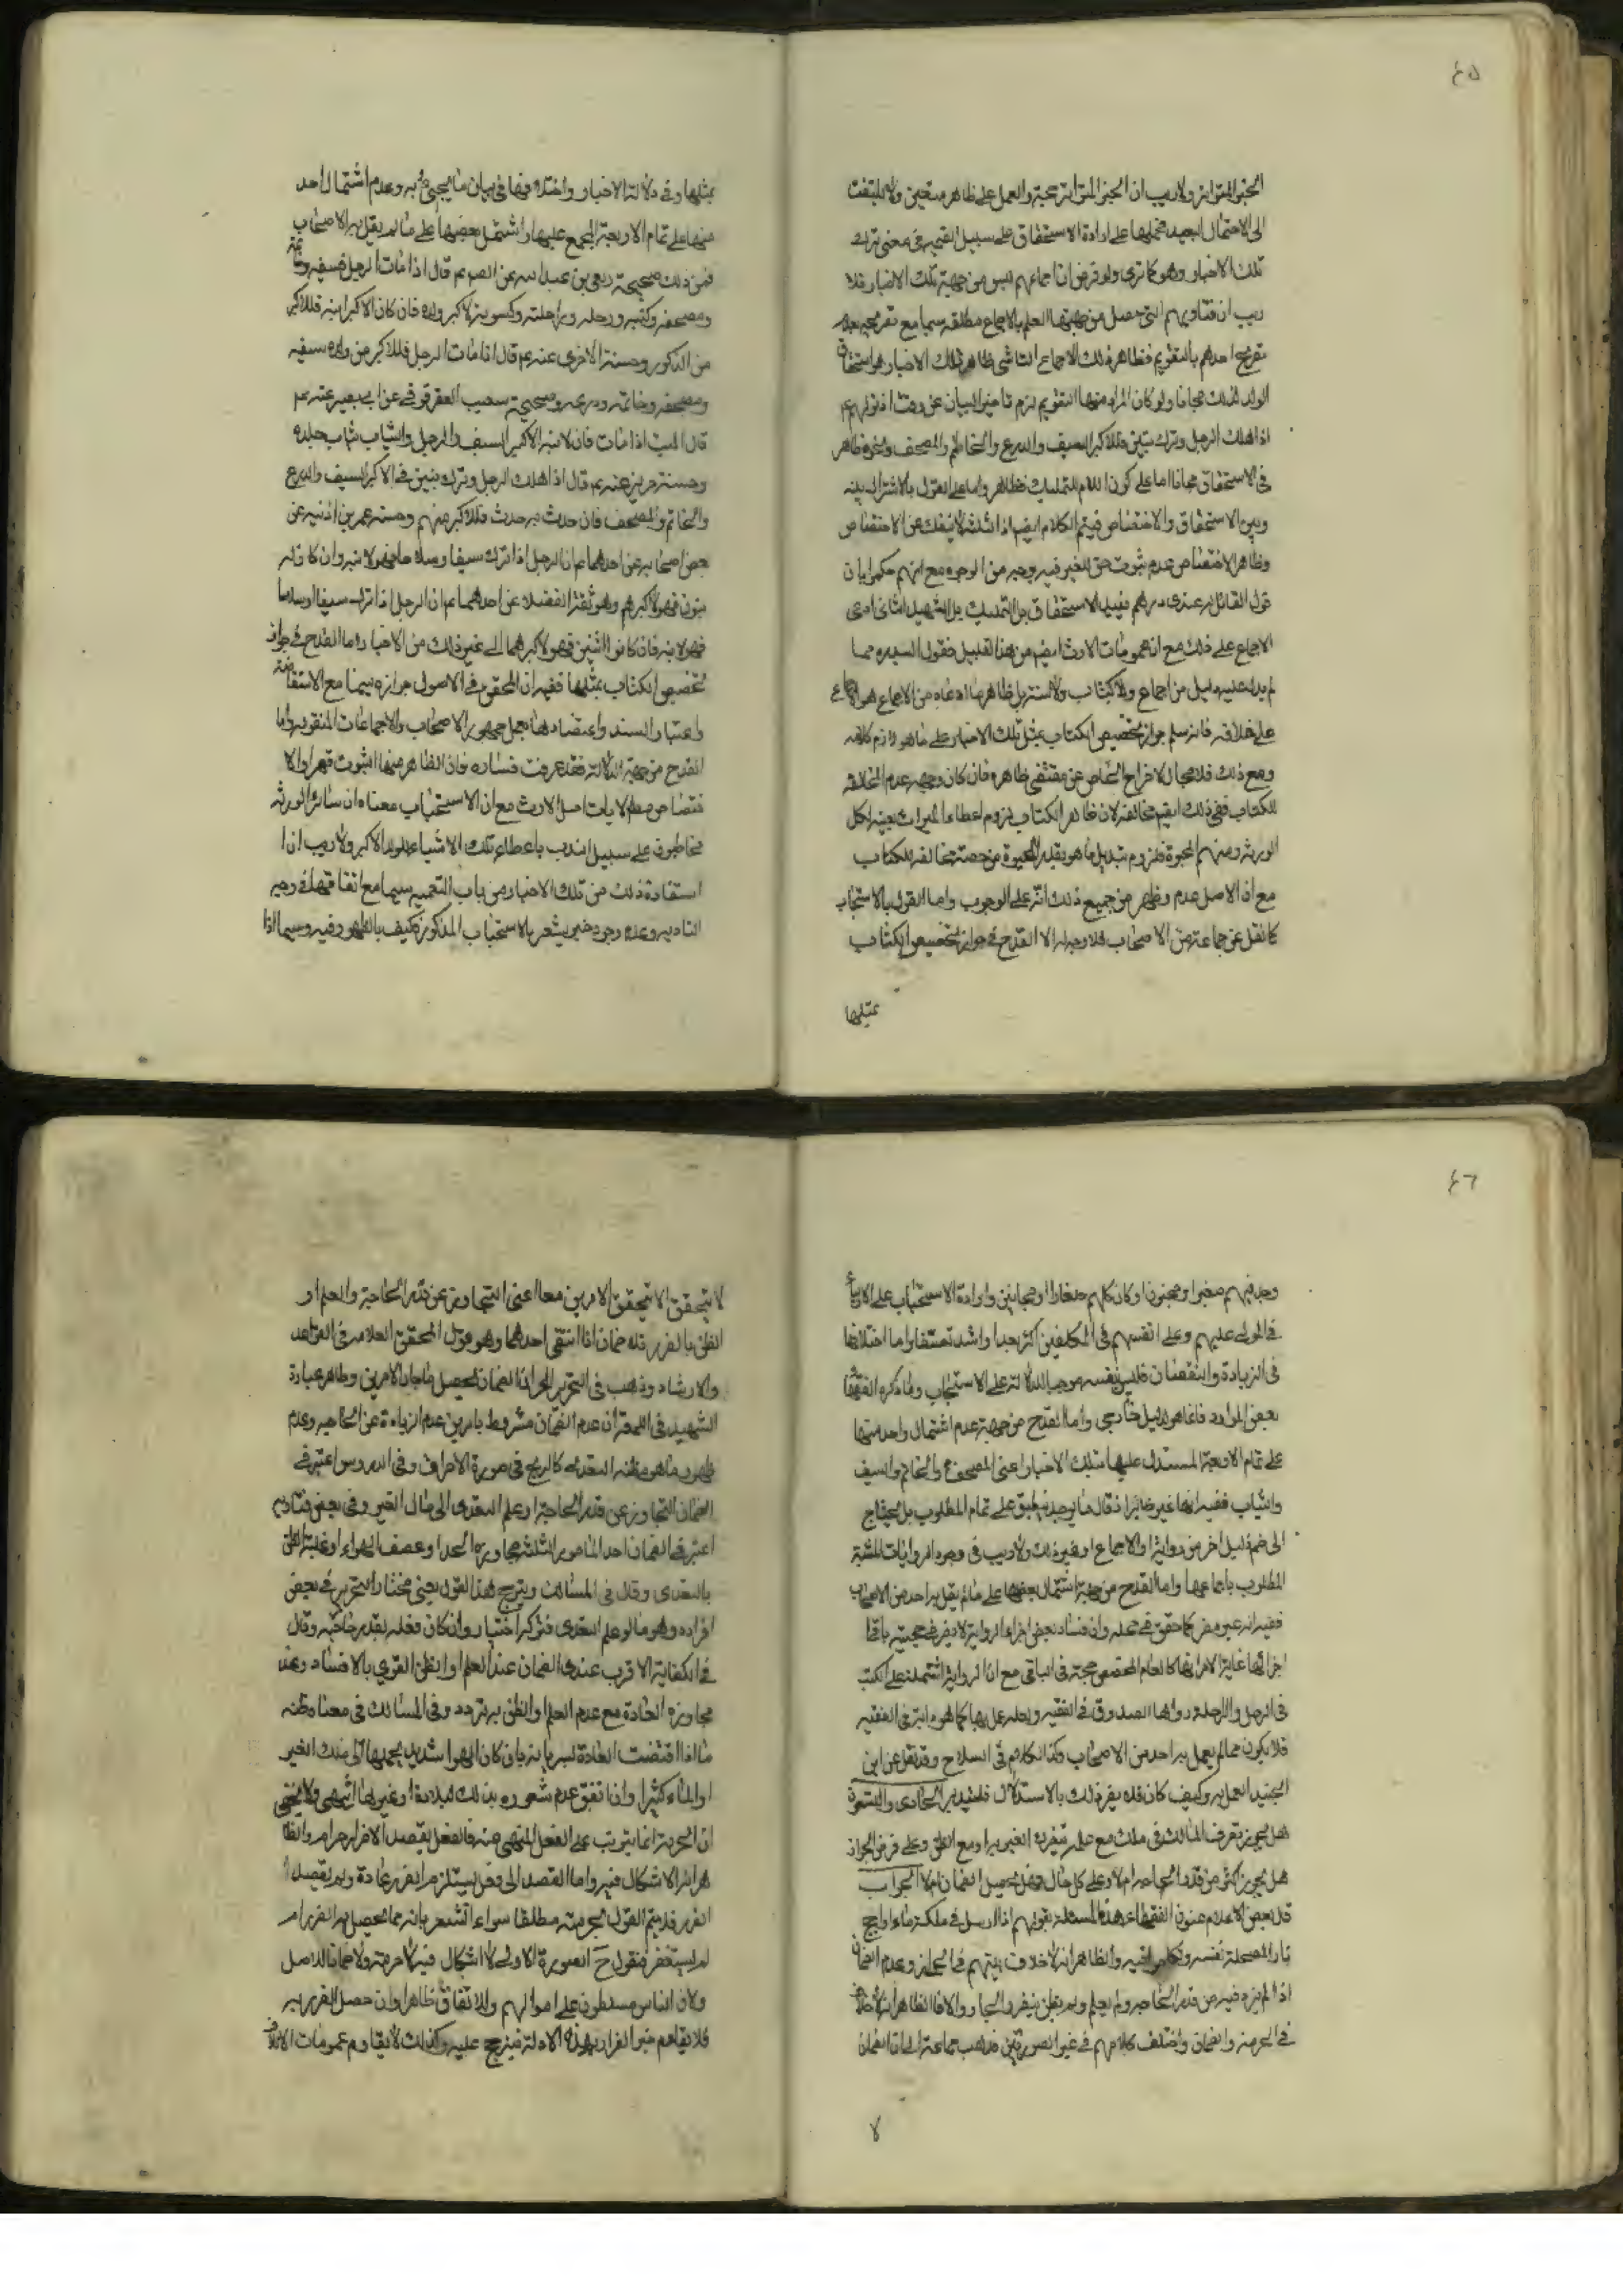 ٤٥
الخبر المتواتر ولاريب ان الخبر المتواتر حجة والعمل على ظاهره متعين ولا يلتفت
الى الاحتمال البعيد فحملها على ارادة الاستحقاق على سبيل القيمة في معنى ترك
تلك الاخبار وهو كما ترى ولو فرض ان اجماعهم ليس من جهة تلك الاخبار فلا
ريب ان فتاويهم التي حصل من جهتها العلم بالاجماع مطلقة سيما مع
احدهم بالتقويم فظاهر ذلك الاجماع ظاهر تلك الاخبار هو استحقاق
الولد لذلك مجانا ولو كان المراد منها التقويم لزم تاخير البيان عن وقت اذ قولهم ع
اذا هلك الرجل وترك بنين فللاكبر السيف والدرع والخاتم والمصحف ونحوه ظاهر
في الاستحقاق مجانا اما على كون اللام للتمليك فظاهر واما على القول بالاشتراك بينه
وبين الاستحقاق والاختصاص فيتم الكلام ايضا اذ الثلثة لا ينفك عن الاختصاص
وظاهر الاختصاص عدم ثبوت حق للغير فيه بوجه من الوجوه مع انهم حكموا بان
قول القائل له عندي درهم يفيد الاستحقاق بل التمليك بل الشهيد الثاني ادعى
الاجماع على ذلك مع ان عمومات الارث ايضا من هذا القبيل فقول السيد ره مما
لم يدل عليه دليل من اجماع ولا كتاب ولا سنة بل ظاهر ما ادعاه من الاجماع هو الاجماع
على خلافه فانه سلم جواز تخصيص الكتاب بمثل تلك الاخبار على ما هو لازم كلامه
ومع ذلك فلا مجال لاخراج الخاص عن مقتضى ظاهره فان كان وجهه عدم المخالفة
للكتاب ففي ذلك ايضا مخالفة لان ظاهر الكتاب لزوم اعطاء الميراث بعينه لكل
الورثة ومنهم الحبوة فلزوم تبديل ما هو بقدر الحبوة من حصة مخالفة للكتاب
مع ان الاصل عدمه وظهر من جميع ذلك انه على الوجوب واما القول بالاستحباب
كما نقل عن جماعة من الاصحاب فلا وجه له الا القدح في جواز تخصيص الكتاب
بمثلها
بمثلها وفي دلالة الاخبار واختلافها في بيان ما يحبى به وعدم اشتمال احد
منها على تمام الاربعة المجمع عليها واشتمل بعضها على ما لم يقل به الاصحاب
فمن ذلك صحيحة ربعي بن عبد الله عن الصم قال اذا مات الرجل فسيفه وخاتمه
ومصحفه وكتبه ورحله وراحلته وكسوته لاكبر ولده فان كان الاكبر ابنة فللاكبر
من الذكور وحسنة الاخرى عنه ع قال اذا مات الرجل فللاكبر من ولده سيفه
ومصحفه وخاتمه ودرعه وصحيحة شعيب العقرقوفي عن ابي بصير عنه ع
قال الميت اذا مات فان لابنه الاكبر السيف والرحل والثياب ثياب جلده
وحسنة حريز عنه ع قال اذا هلك الرجل وترك بنين فللاكبر السيف والدرع
والخاتم والمصحف فان حدث به حدث فللاكبر منهم وحسنة عمر بن اذينة عن
بعض اصحابه عن احدهما ع ان الرجل اذا ترك سيفا وسلاحا فهو لابنه وان كان له
بنون فهو لاكبرهم وموثقة الفضلاء عن احدهما ع ان الرجل اذا ترك سيفا او سلاحا
فهو لابنه فان كانوا اثنين فهو لاكبرهما الى غير ذلك من الاخبار واما القدح في جواز
تخصيص الكتاب بمثلها ففيه ان المحقق في الاصول جوازه سيما مع الاستفاضة
واعتبار السند واعتضادها بعمل جمهور الاصحاب والاجماعات المنقولة واما
القدح من جهة الدلالة فقد عرفت فساده فان الظاهر منها الثبوت قهرا والا
فتضاهي الايات اصل الارث مع ان الاستحباب معناه ان سائر الورثة
مخاطبون على سبيل الندب باعطاء تلك الاشياء للولد الاكبر ولاريب ان
استفادة ذلك من تلك الاخبار من باب التعمية سيما مع اتفاقها في وجه
التادية وعدم وجود خبر يشعر بالاستحباب المذكور فكيف بالظهور فيه وسيما اذا
٤٦
وجد فيهم صغيرا ومجنون او كان كلهم صغارا او مجانين وارادة الاستحباب على الاولياء
في المولى عليهم وعلى انفسهم في المكلفين اكثر بعدا واشد تعسفا واما اختلافها
في الزيادة والنقصان فليس بنفسه موجبا للدلالة على الاستحباب وما ذكره الفقهاء
بعض الموارد فانما هو لدليل خارجي واما القدح من جهة عدم اشتمال واحد منها
على تمام الاربعة المستدل عليها بتلك الاخبار اعني المصحف والخاتم والسيف
والثياب ففيه انها غير ضائر اذ قل ما يوجد ينطبق على تمام المطلوب بل يحتاج
الى ضم دليل اخر من رواية او الاجماع او غير ذلك ولا ريب في وجود الروايات المثبتة
المطلوب باجماعها واما القدح من جهة اشتمال بعضها على ما لم يقل به احد من الاصحاب
ففيه انه غير مضر كما حقق في محله وان فساد بعض اجزاء الرواية لا يضر في حجية باقي
اجزائها غاية الامر انها كالعام المخصص حجة في الباقي مع ان الرواية المشتملة على الكتب
في الرحل والراحلة رواها الصدوق في الفقيه ولعله عمل بها كما هو دابه في الفقيه
فلا يكون مما لم يعمل به احد من الاصحاب وكذا الكلام في السلاح وقد نقل عن ابن
الجنيد العمل به وكيف كان فلا يضر ذلك بالاستدلال
هل يجوز تصرف المالك في ملكه مع علمه بتضرر الغير به او مع الظن وعلى فرض الجواز
هل يجوز اكثر من قدر الحاجة ام لا وعلى كل حال فهل يحصل الضمان ام لا الجواب
قال بعض الاعلام عنون الفقهاء هذه المسئلة بقولهم اذا ارسل في ملكه ماء او اجج
نارا لمصلحة نفسه والظاهر انه لا خلاف بينهم في الجواز وعدم الضمان
اذا لم يزد فيه عن قدر الحاجة ولم يعلم ولم يظن بتضرر الجار والا فالظاهر
في الحرمة والضمان واختلف كلامهم في غير الصورتين فذهب جماعة الى ان الضمان
لا
لا يتحقق الا بتحقق الامرين معا اعني التجاوز عن قدر الحاجة والعلم او
الظن بالضرر فلا ضمان اذا انتفى احدهما وهو قول المحقق العلامة في القواعد
والارشاد وذهب في التحرير الى ان الضمان يحصل باحد الامرين وظاهر عبارة
الشهيد في اللمعة ان عدم الضمان مشروط بامرين عدم الزيادة عن الحاجة وعدم
ظهور ما هو مظنة التعدي كالريح في صورة الاحراق وفي الدروس اعتبر في
الضمان التجاوز عن قدر الحاجة او علم التعدي الى مال الغير وفي بعض فتاويه
اعتبر في الضمان احد الامور الثلثة مجاوزة الحد او عصف الهواء او غلبة الظن
بالتعدي وقال في المسالك ويترجح هذا القول يعني مختار التحرير في بعض
افراده وهو ما لو علم التعدي فتركه اختيارا وان كان فعله بقدر حاجته وقال
في الكفاية الاقرب عندي الضمان عند العلم او الظن القوي بالافساد وعند
مجاوزة العادة مع عدم العلم والظن به تردد وفي المسالك في معنا مظنه
ما اذا اقتضت العادة بسريانه بان كان الهوا شديد يحملها الى ملك الغير
او الماء كثيرا وان اتفق عدم شعوره بذلك لبلادة او غيرها انتهى ولا يخفى
ان الحرمة انما يترتب على الفعل المنهي عنه فالفعل بقصد الاضرار حرام والظا
هر انه لا اشكال فيه واما القصد الى فعل يستلزم الضرر عادة ولم يقصد
الضرر فلا يتم القول بحرمته مطلقا سواء استشعر بانه مما يحصل به الضرر ام
لم يستشعر فنقول ح الصورة الاولى لا اشكال فيه لا حرمة ولا ضمان للاصل
ولان الناس مسلطون على اموالهم وللاتفاق ظاهرا وان حصل الضرر به
فلا يقاوم خبر الضرار بهذه الادلة فيترجح عليه وكذلك لا يقاوم عمومات الاتلاف